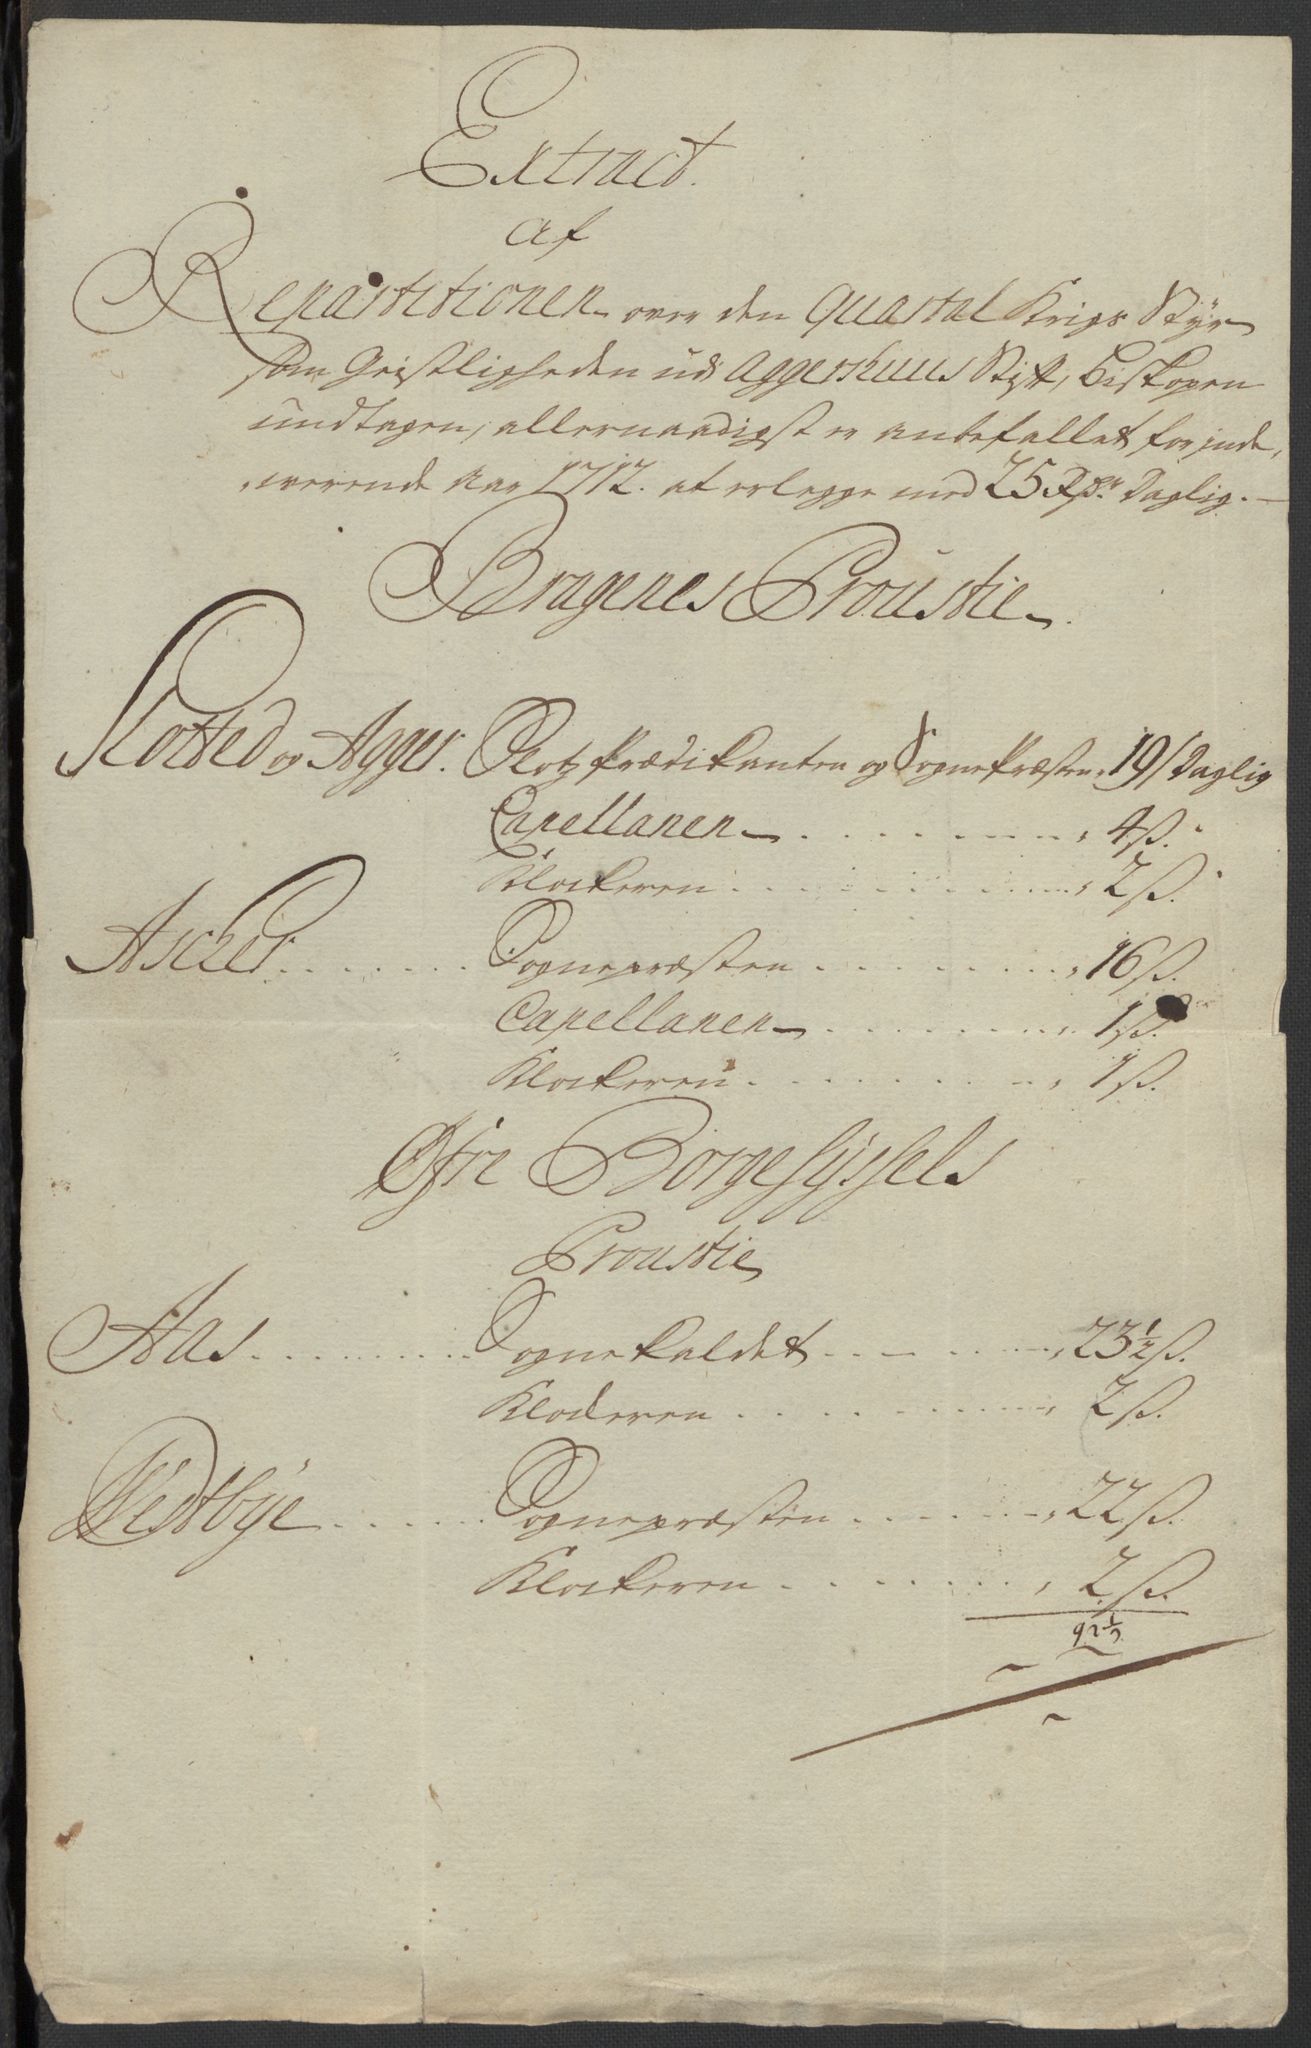 Extract.
af
Repartitionen over den Quartal Krigs Styr
som Geistligheden udi Aggershuus Stift, Biskopen
undtagen, allernaadigst er anbefallet for inde,
werende Aar 1712. at erlegge med 25 Rdr. Daglig.
Bragenes Proustie
Slotted og Agger. Slotz Prædikanten og Sognepræsten, 19/ Daglig
Capellanen . . . . . . , 4ß.
Klockeren . . . . . . , 2ß.
Ascher . . . . Sognepræsten . . . . . . , 16ß.
Capellanen . . . . . . , 1ß.
Klockeren . . . . . . , 1ß.
Øfre Borgesyssels
Proustie
Aas . . . . Sognekaldet . . . . . . , 23½ß.
Klockeren . . . . . . , 2ß.
Westbye . . . . Sognepræsten . . . . . . , 22ß.
Klockeren . . . . . . , 2ß.
92½